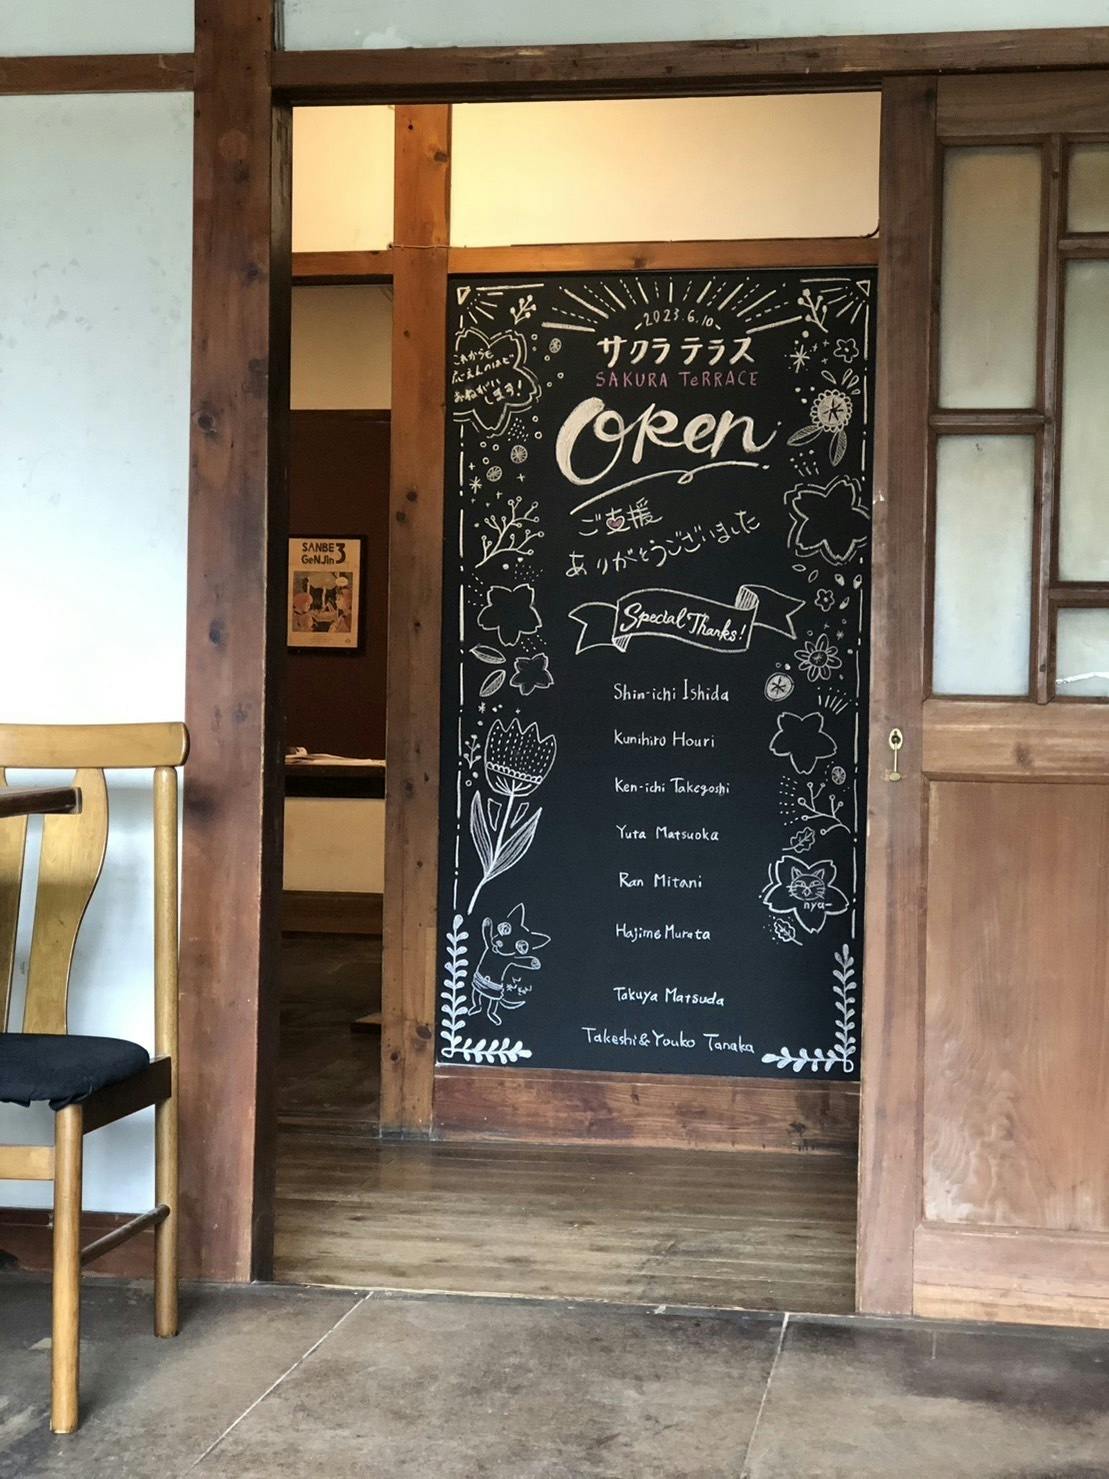 -2023.6.10-
サクラ テラス
SAKURA TeRRACE
Open
これからも
おうえんのほど
おねがい
します!
ご支援
ありがとうございました
Special Thanks!
Shin-ichi Ishida
Kunihiro Houri
Ken-ichi Takegoshi
Yuta Matsuoka
Ran Mitani
Hajime Murata
Takuya Matsuda
Takeshi & Youko Tanaka
nya-
SANBE
GeNJin3